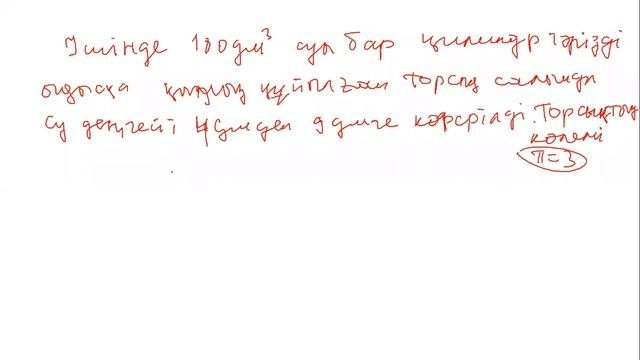 Ішінде 180 дм³ су бар цилиндр тәрізді
ыдысқа қымыз құйылған торсық салғанда
су деңгейі 4 дмден 9 дмге көтерілді. Торсықтың
көлемі
π=3